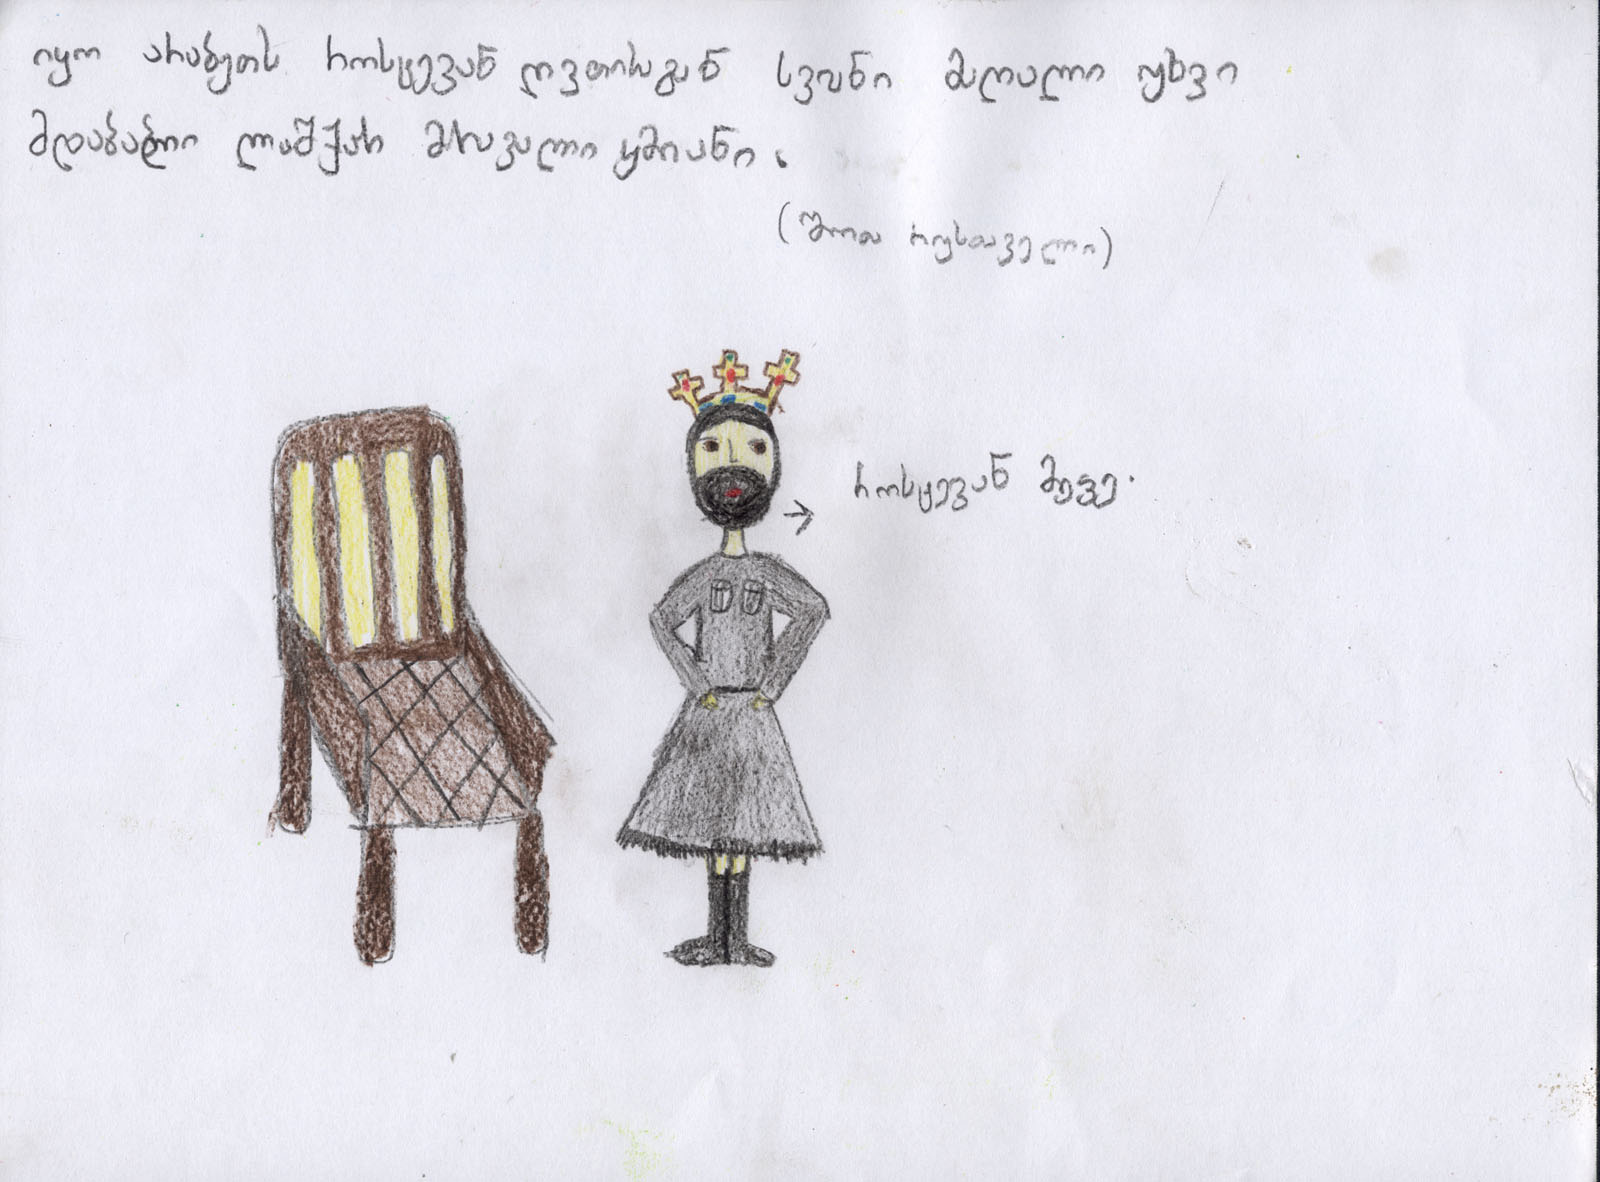 იყო არაბეთს როსტევან ღვთისგან სვიანი მაღალი უხვი
მდაბალი ლაშქარ მრავალი ყმიანი.
(შოთა რუსთაველი)
როსტევან მეფე.